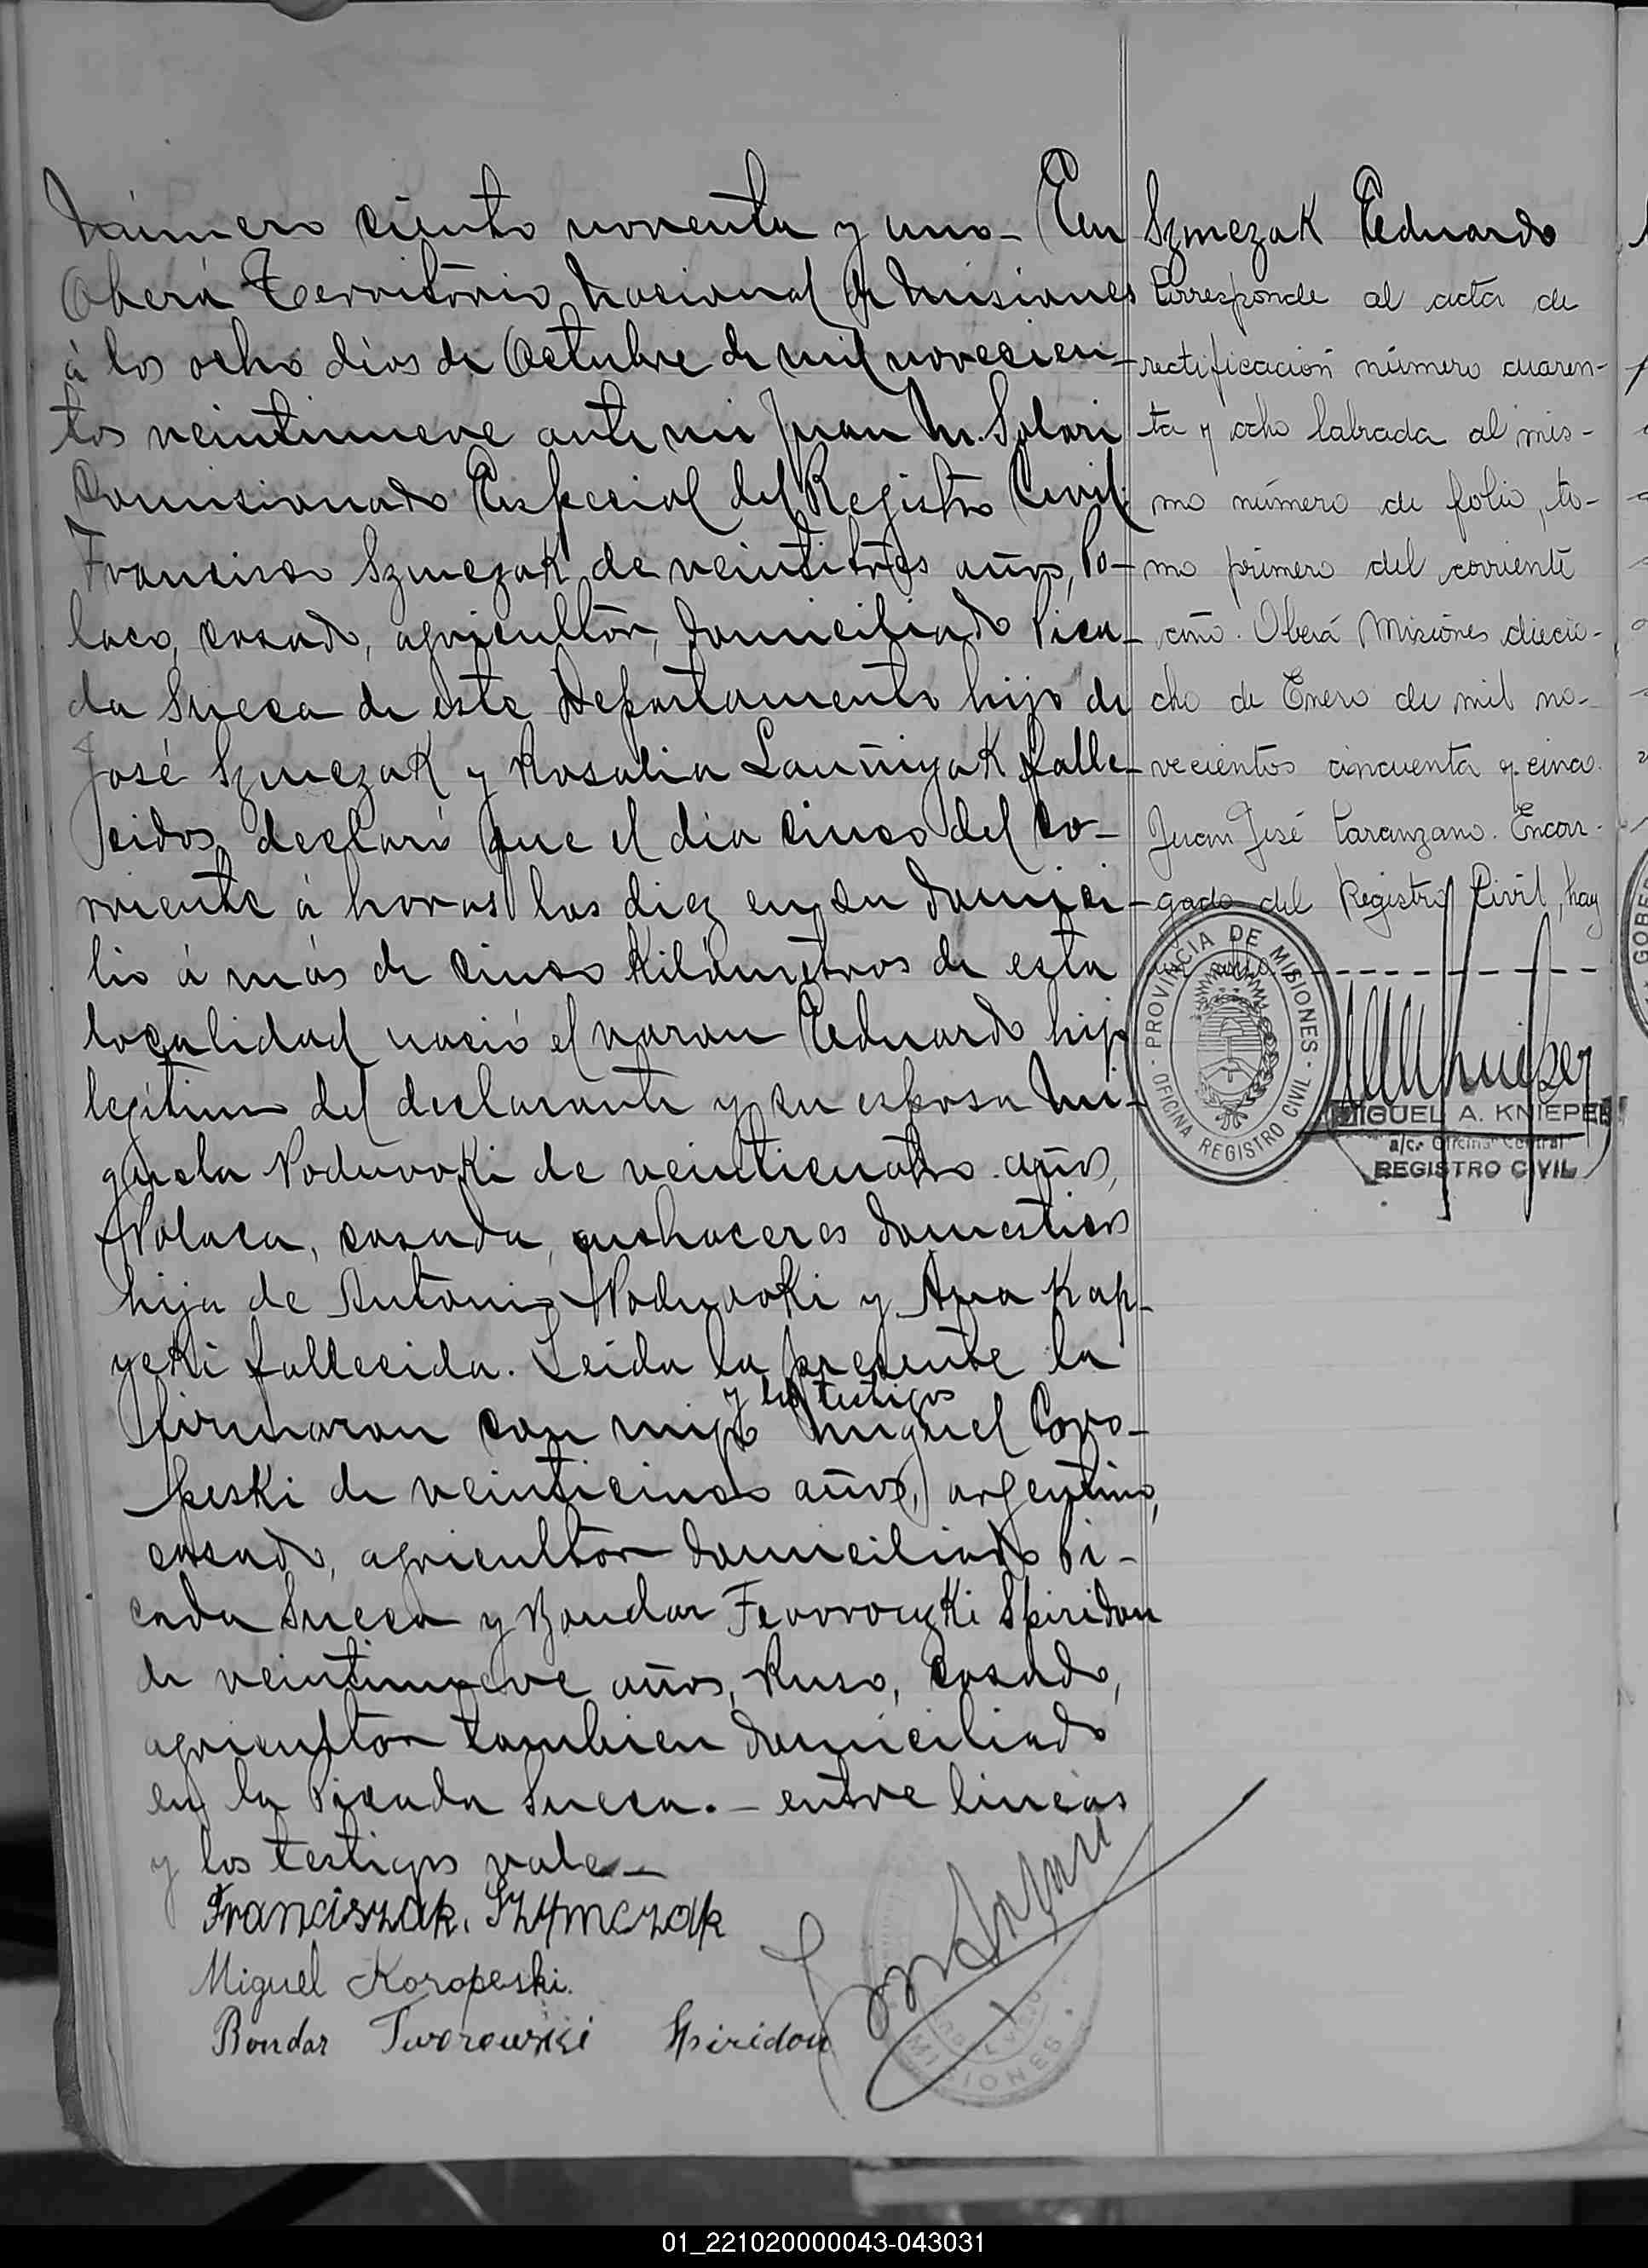 Número ciento noventa y uno - En
Oberá Territorio Nacional de Misiones
á los ocho dias de Octubre de mil novecien-
tos veintinueve ante mi Juan M. Solari
Comisionado Especial del Registro Civil
Francisco Szmczak de veintitrés años, Po-
laco, casado, agricultor, domiciliado Pica-
da Sueca de este Departamento hijo de
José Szmczak y Rosalia falle-
cidos, declaró que el dia cinco del co-
rriente á horas las diez en su domici-
lio á más de cinco Kilómetros de esta
localidad nació el varon Eduardo hijo
legítimo del declarante y su esposa Mi-
guela de veinticuatro años,
Polaca, casada, quehaceres domesticos
hija de Antonio y Ana Kap-
ycki fallecida. Leida la presente la
y los testigos
firmaron con migo Miguel Coro-
peski de veinticinco años, argentino,
casado, agricultor domiciliado Pi-
cada Sueca y Bondar Spiridon
de veintinueve años, Ruso, casado,
agricultor tambien domiciliado
en la Picada Sueca. - entre lineas
y los testigos vale -
Franciszak. Szymczak
Miguel Koropeski.
Bondar Tworowski Spiridon
MISIONES
Szmczak Eduardo
Corresponde al acta de
rectificación número cuaren-
ta y ocho labrada al mis-
mo número de folio, to-
mo primero del corriente
año. Oberá Misiones diecio-
cho de Enero de mil no-
vecientos cincuenta y cinco.
Juan José Caranzano. Encar-
gado del Registro Civil, hay
sello. - - - - - - - - -
PROVINCIA DE MISIONES
OFICINA REGISTRO CIVIL
MIGUEL A. KNIEPER
a/c. Oficina Central
REGISTRO CIVIL
01_221020000043-043031